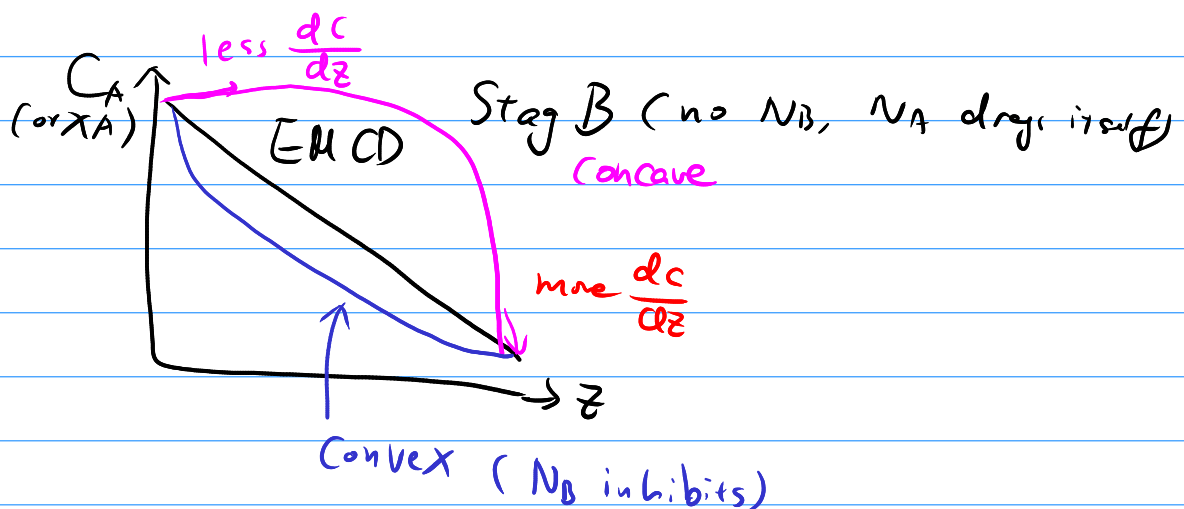 less dC/dz
C_A
(or X_A)
EMCD
Stag B (no N_B, N_A drags itself)
Concave
more dC/dz
z
Convex (N_B inhibits)